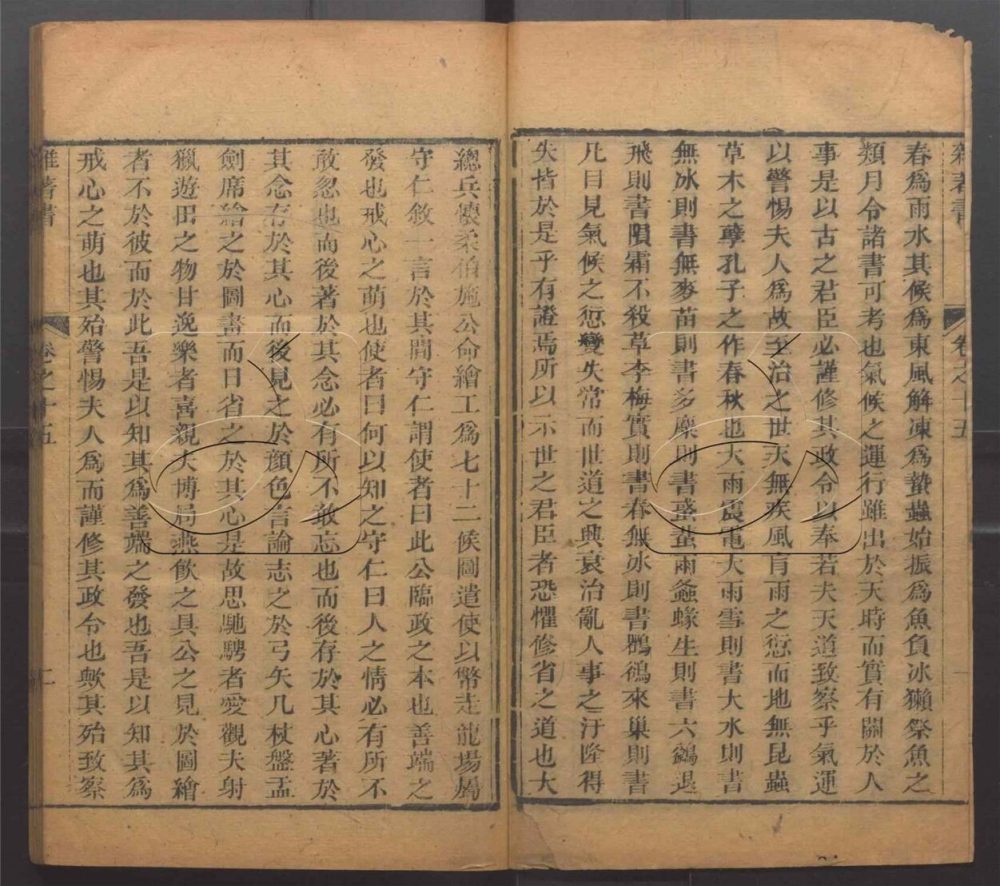 雜著書
卷之十五
一
春爲雨水其候爲東風解凍爲蟄蟲始振爲魚負冰獺祭魚之
類月令諸書可考也氣候之運行雖出於天時而實有關於人
事是以古之君臣必謹修其政令以奉若夫天道致察乎氣運
以警惕夫人爲故至治之世天無疾風盲雨之愆而地無昆蟲
草木之孽孔子之作春秋也大雨震電大雨雪則書大水則書
無冰則書無麥苗則書多麋則書蜮蜚雨螽蝝生則書六鷁退
飛則書隕霜不殺草李梅實則書春無冰則書鸜鵒來巢則書
凡目見氣候之愆變失常而世道之興衰治亂人事之汙隆得
失皆於是乎有證焉所以示世之君臣者恐懼修省之道也大
總兵懷柔伯施公命繪工爲七十二候圖遣使以幣走龍場屬
守仁敘一言於其間守仁謂使者曰此公臨政之本也善端之
發也戒心之萌也使者曰何以知之守仁曰人之情必有所不
敢忽也而後著於其念必有所不敢忘也而後存於其心著於
其念存於其心而後見之於顏色言論志之於弓矢几杖盤盂
劍席繪之於圖書而日省之於其心是故思馳騁者愛觀夫射
獵遊田之物甘逸樂者喜親夫博局燕飲之具公之見於圖繪
者不於彼而於此吾是以知其爲善端之發也吾是以知其爲
戒心之萌也其殆警惕夫人爲而謹修其政令也歟其殆致察
雜著書
卷之十五
二